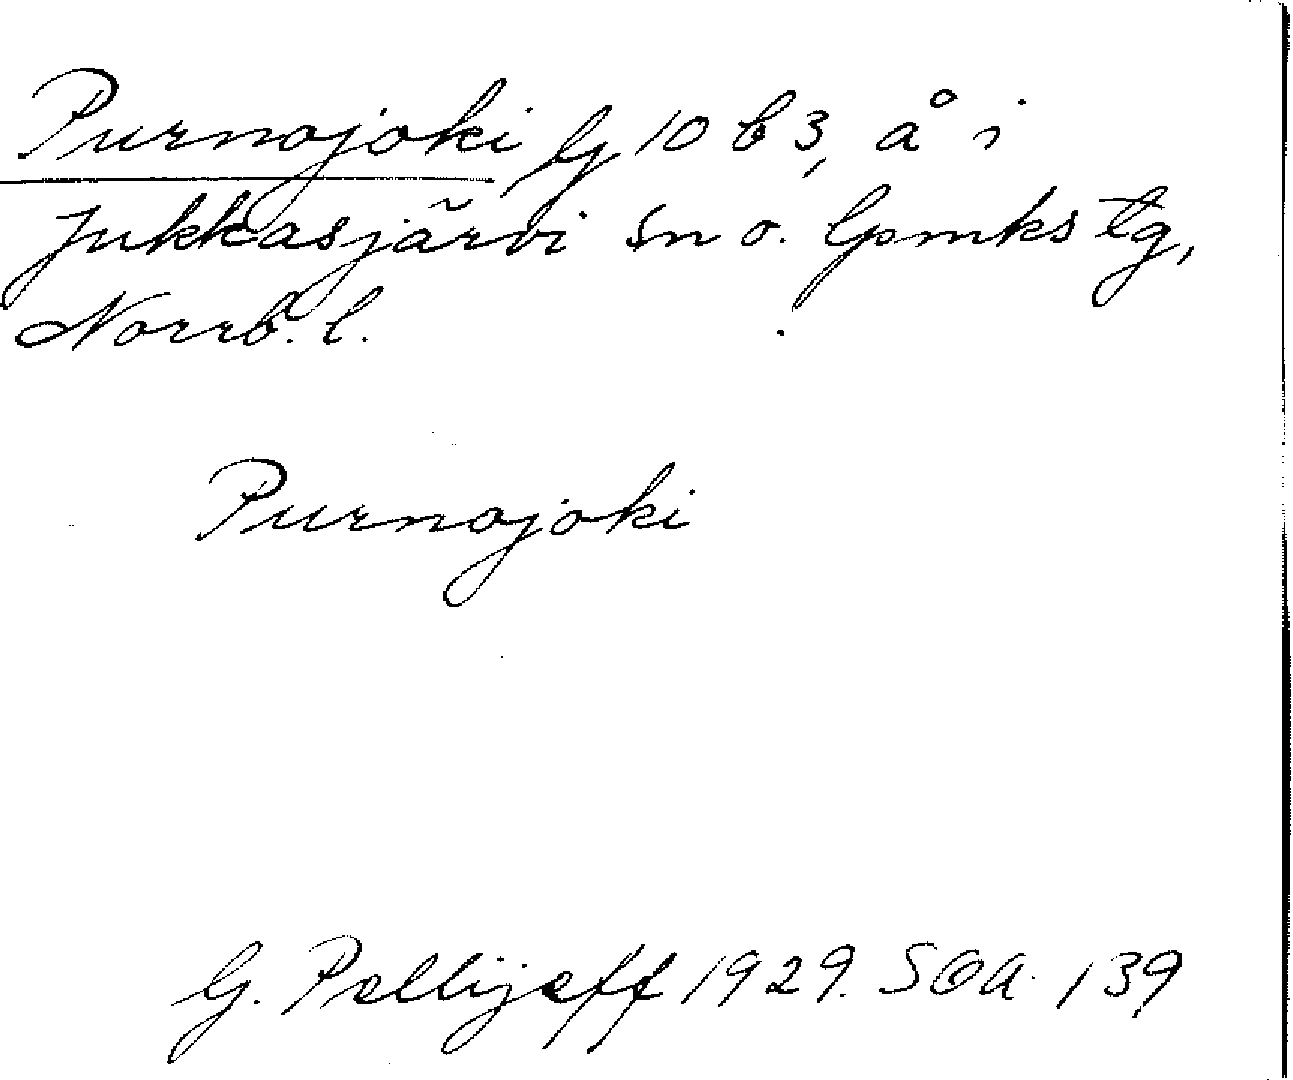 Purnojoki G 10 b 3, å i
Jukkasjärvi sn o. lpmks tg,
Norrb. l.
Purnojoki
G. Pellijeff 1929. SOA. 139